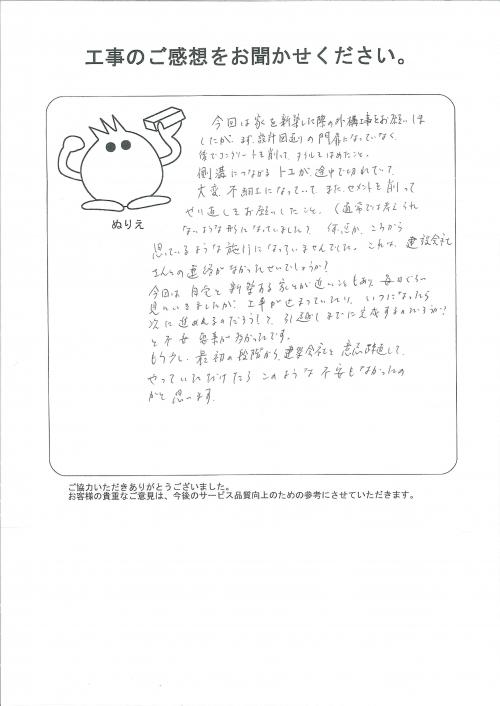 工事のご感想をお聞かせください。
今回は家を新築した際の外構工事をお願いしま
したが、まず、設計図通りの門扉になっていなく、
後でコンクリートを削って
側溝につながる が、途中で切れていて、
大変、不細工になっていて、また、セメントを削って
やり直しをお願いしたこと。(通常では考えられ
ないような形になっていました) 何 か、こちらが
ぬりえ
思っているような施行になっていませんでした。これは、建設会社
さんとの連絡がなかったせいでしょうか?
今回は自宅と新築する家とが近いこともあり、毎日ぐらい
見にいきましたが、工事が止まっていたり、いつになったら
次に進めるのだろう?、引越しまでに完成するのだろうか?
と不安要素が多かったです。
もう少し、最初の段階から、建築会社と意思疎通して、
やっていただけたら このような不安もなかったの
かと思います。
ご協力いただきありがとうございました。
お客様の貴重なご意見は、今後のサービス品質向上のための参考にさせていただきます。